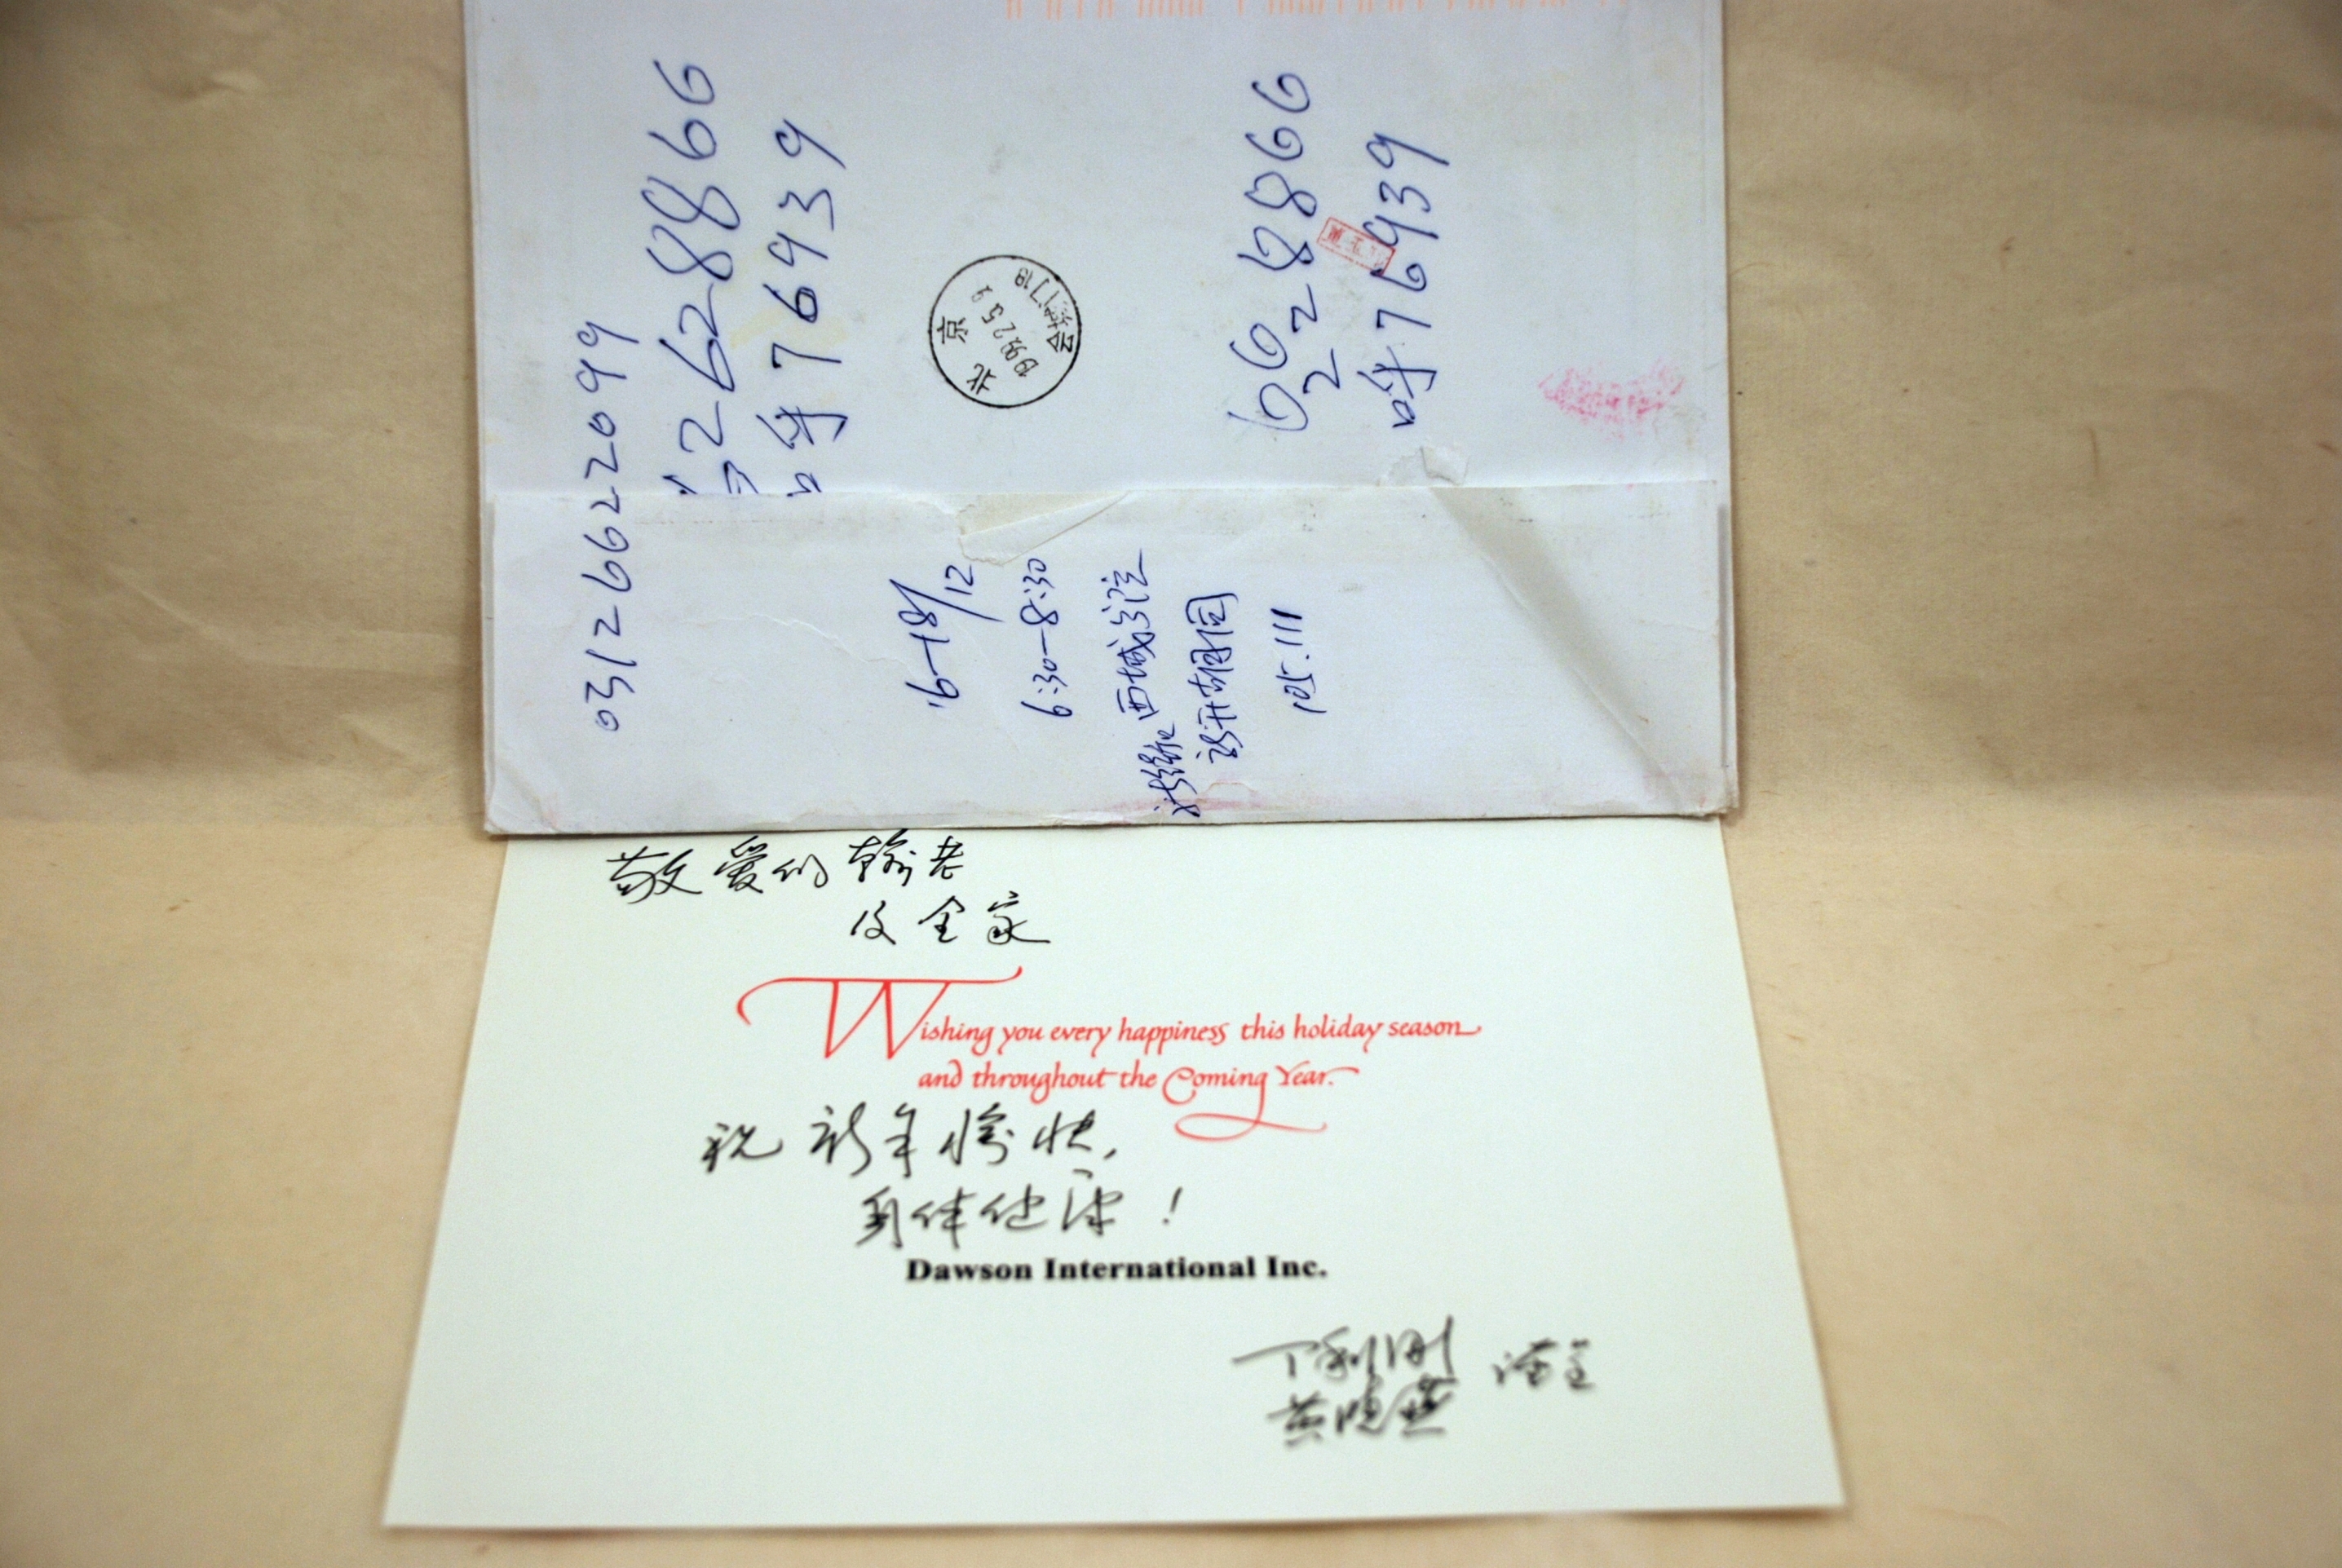 03126622099
2628866
呼76439
北京
66 22 8866
呼76939
16-18/12
6:30-8:30
西城
新开胡同
111
敬爱的翰老
及全家
Wishing you every happiness this holiday season
and throughout the Coming Year.
祝新年愉快,
身体健康!
Dawson International Inc.
丁利刚
黄晓燕